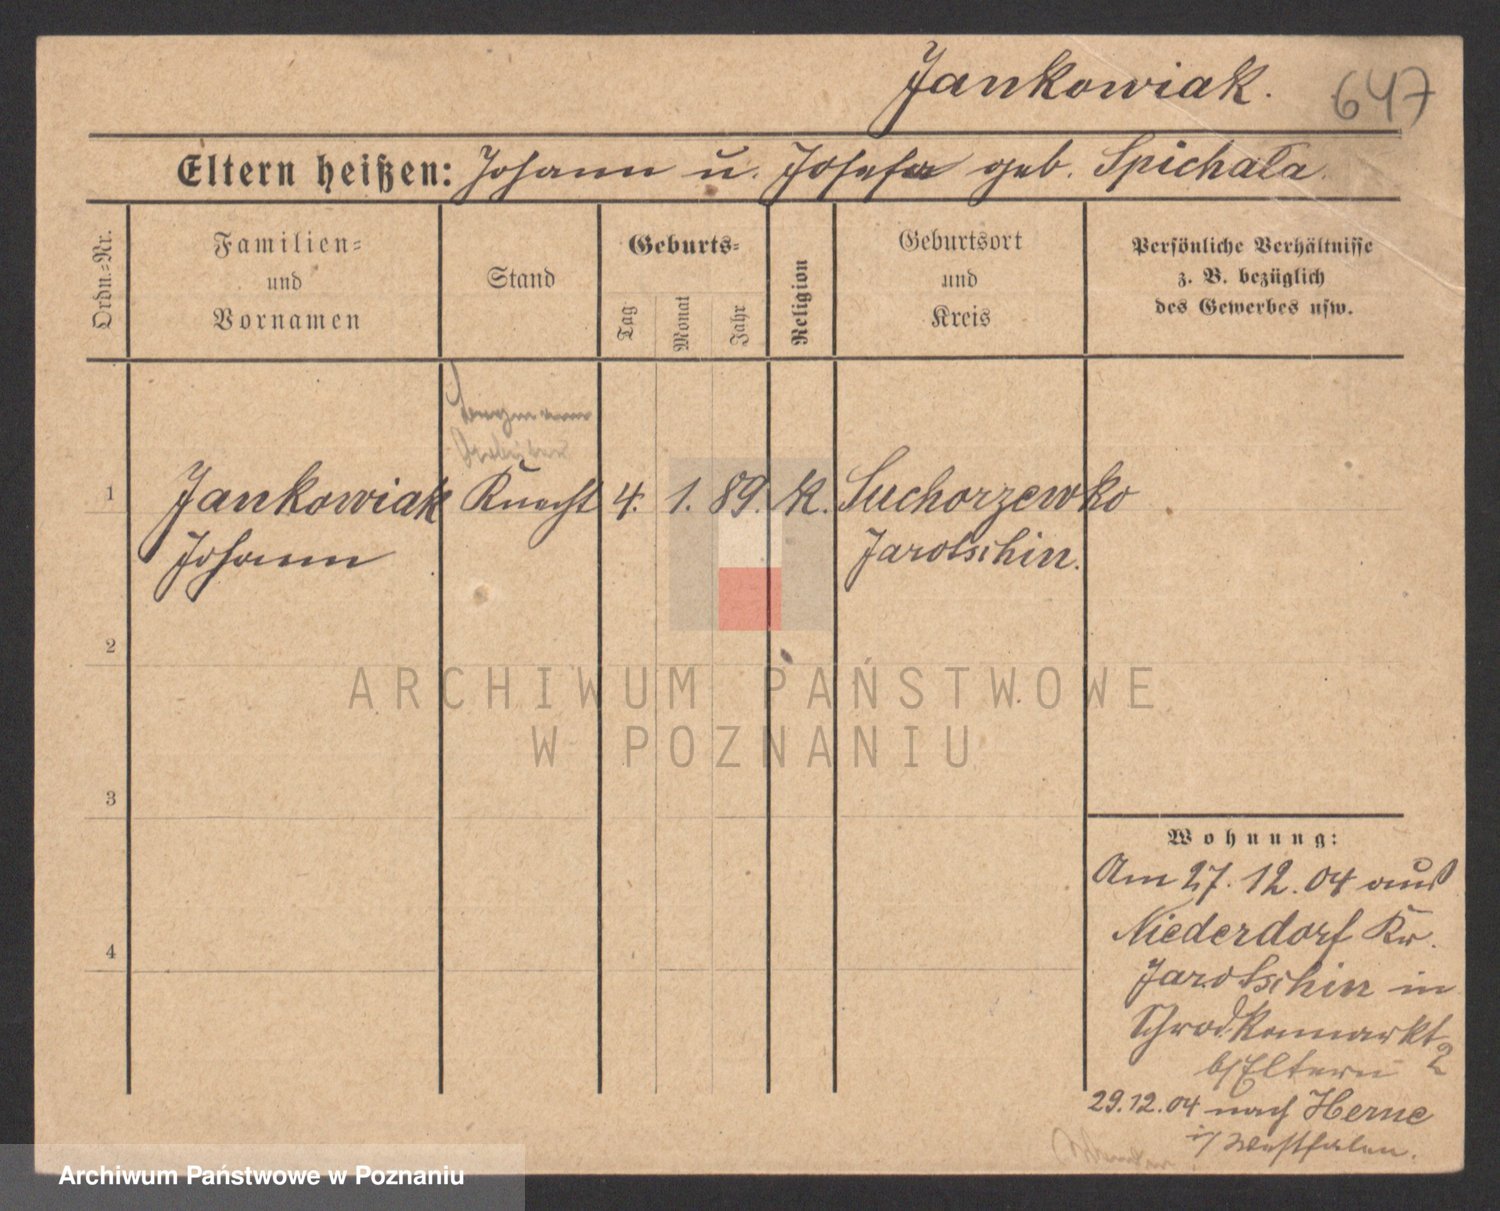 Jankowiak.
647
Eltern heißen: Johann u. Josefa geb. Spichala.
Ordn.-Nr.
Familien-
und
Vornamen
Stand
Geburts-
Tag
Monat
Jahr
Religion
Geburtsort
und
Kreis
Persönliche Verhältnisse
z. B. bezüglich
des Gewerbes usw.
Bergmann
Arbeiter
1 Jankowiak Knecht 4. 1. 89. K. Suchorzewko
Johann Jarotschin.
2
3
4
ARCHIWUM PAŃSTWOWE
W POZNANIU
Wohnung:
Am 27. 12. 04 aus
Niederdorf Kr.
Jarotschin in
Schroda
2
b/Eltern
29.12.04 nach Herne
i/ Westfalen.
Archiwum Państwowe w Poznaniu